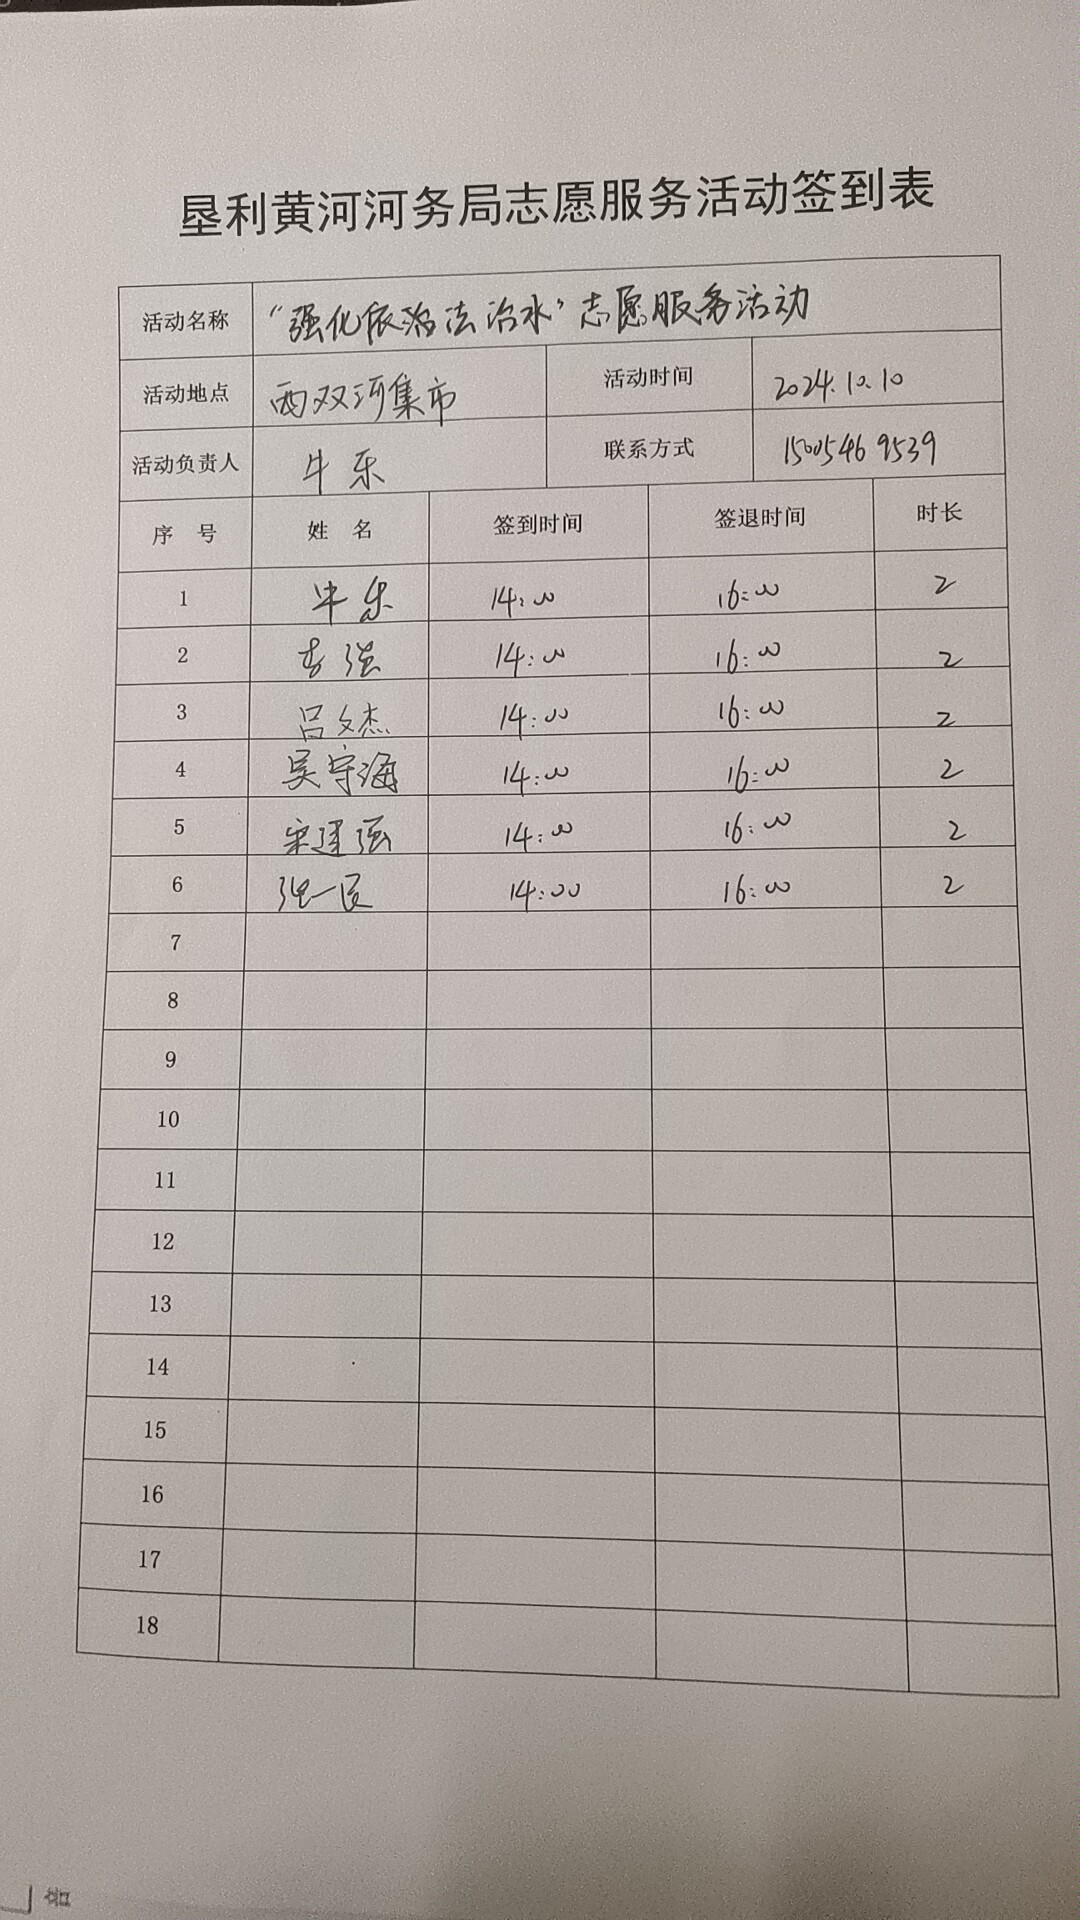 垦利黄河河务局志愿服务活动签到表
活动名称 “强化依治法治水”志愿服务活动
活动地点 西双河集市 活动时间 2024.10.10
活动负责人 牛乐 联系方式 15005469539
序号 姓名 签到时间 签退时间 时长
1 牛乐 14:00 16:00 2
2 李强 14:00 16:00 2
3 吕文杰 14:00 16:00 2
4 吴守海 14:00 16:00 2
5 宋建强 14:00 16:00 2
6 张一民 14:00 16:00 2
7
8
9
10
11
12
13
14
15
16
17
18